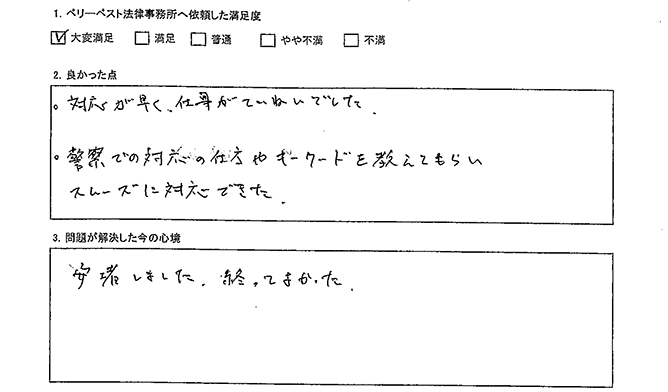 1. ベリーベスト法律事務所へ依頼した満足度
☑大変満足 □満足 □普通 □やや不満 □不満
2. 良かった点
。対応が早く、仕事がていねいでした.
。警察での対応の仕方やキーワードを教えてもらい
スムーズに対応できた.
3. 問題が解決した今の心境
安堵しました. 終ってよかった.